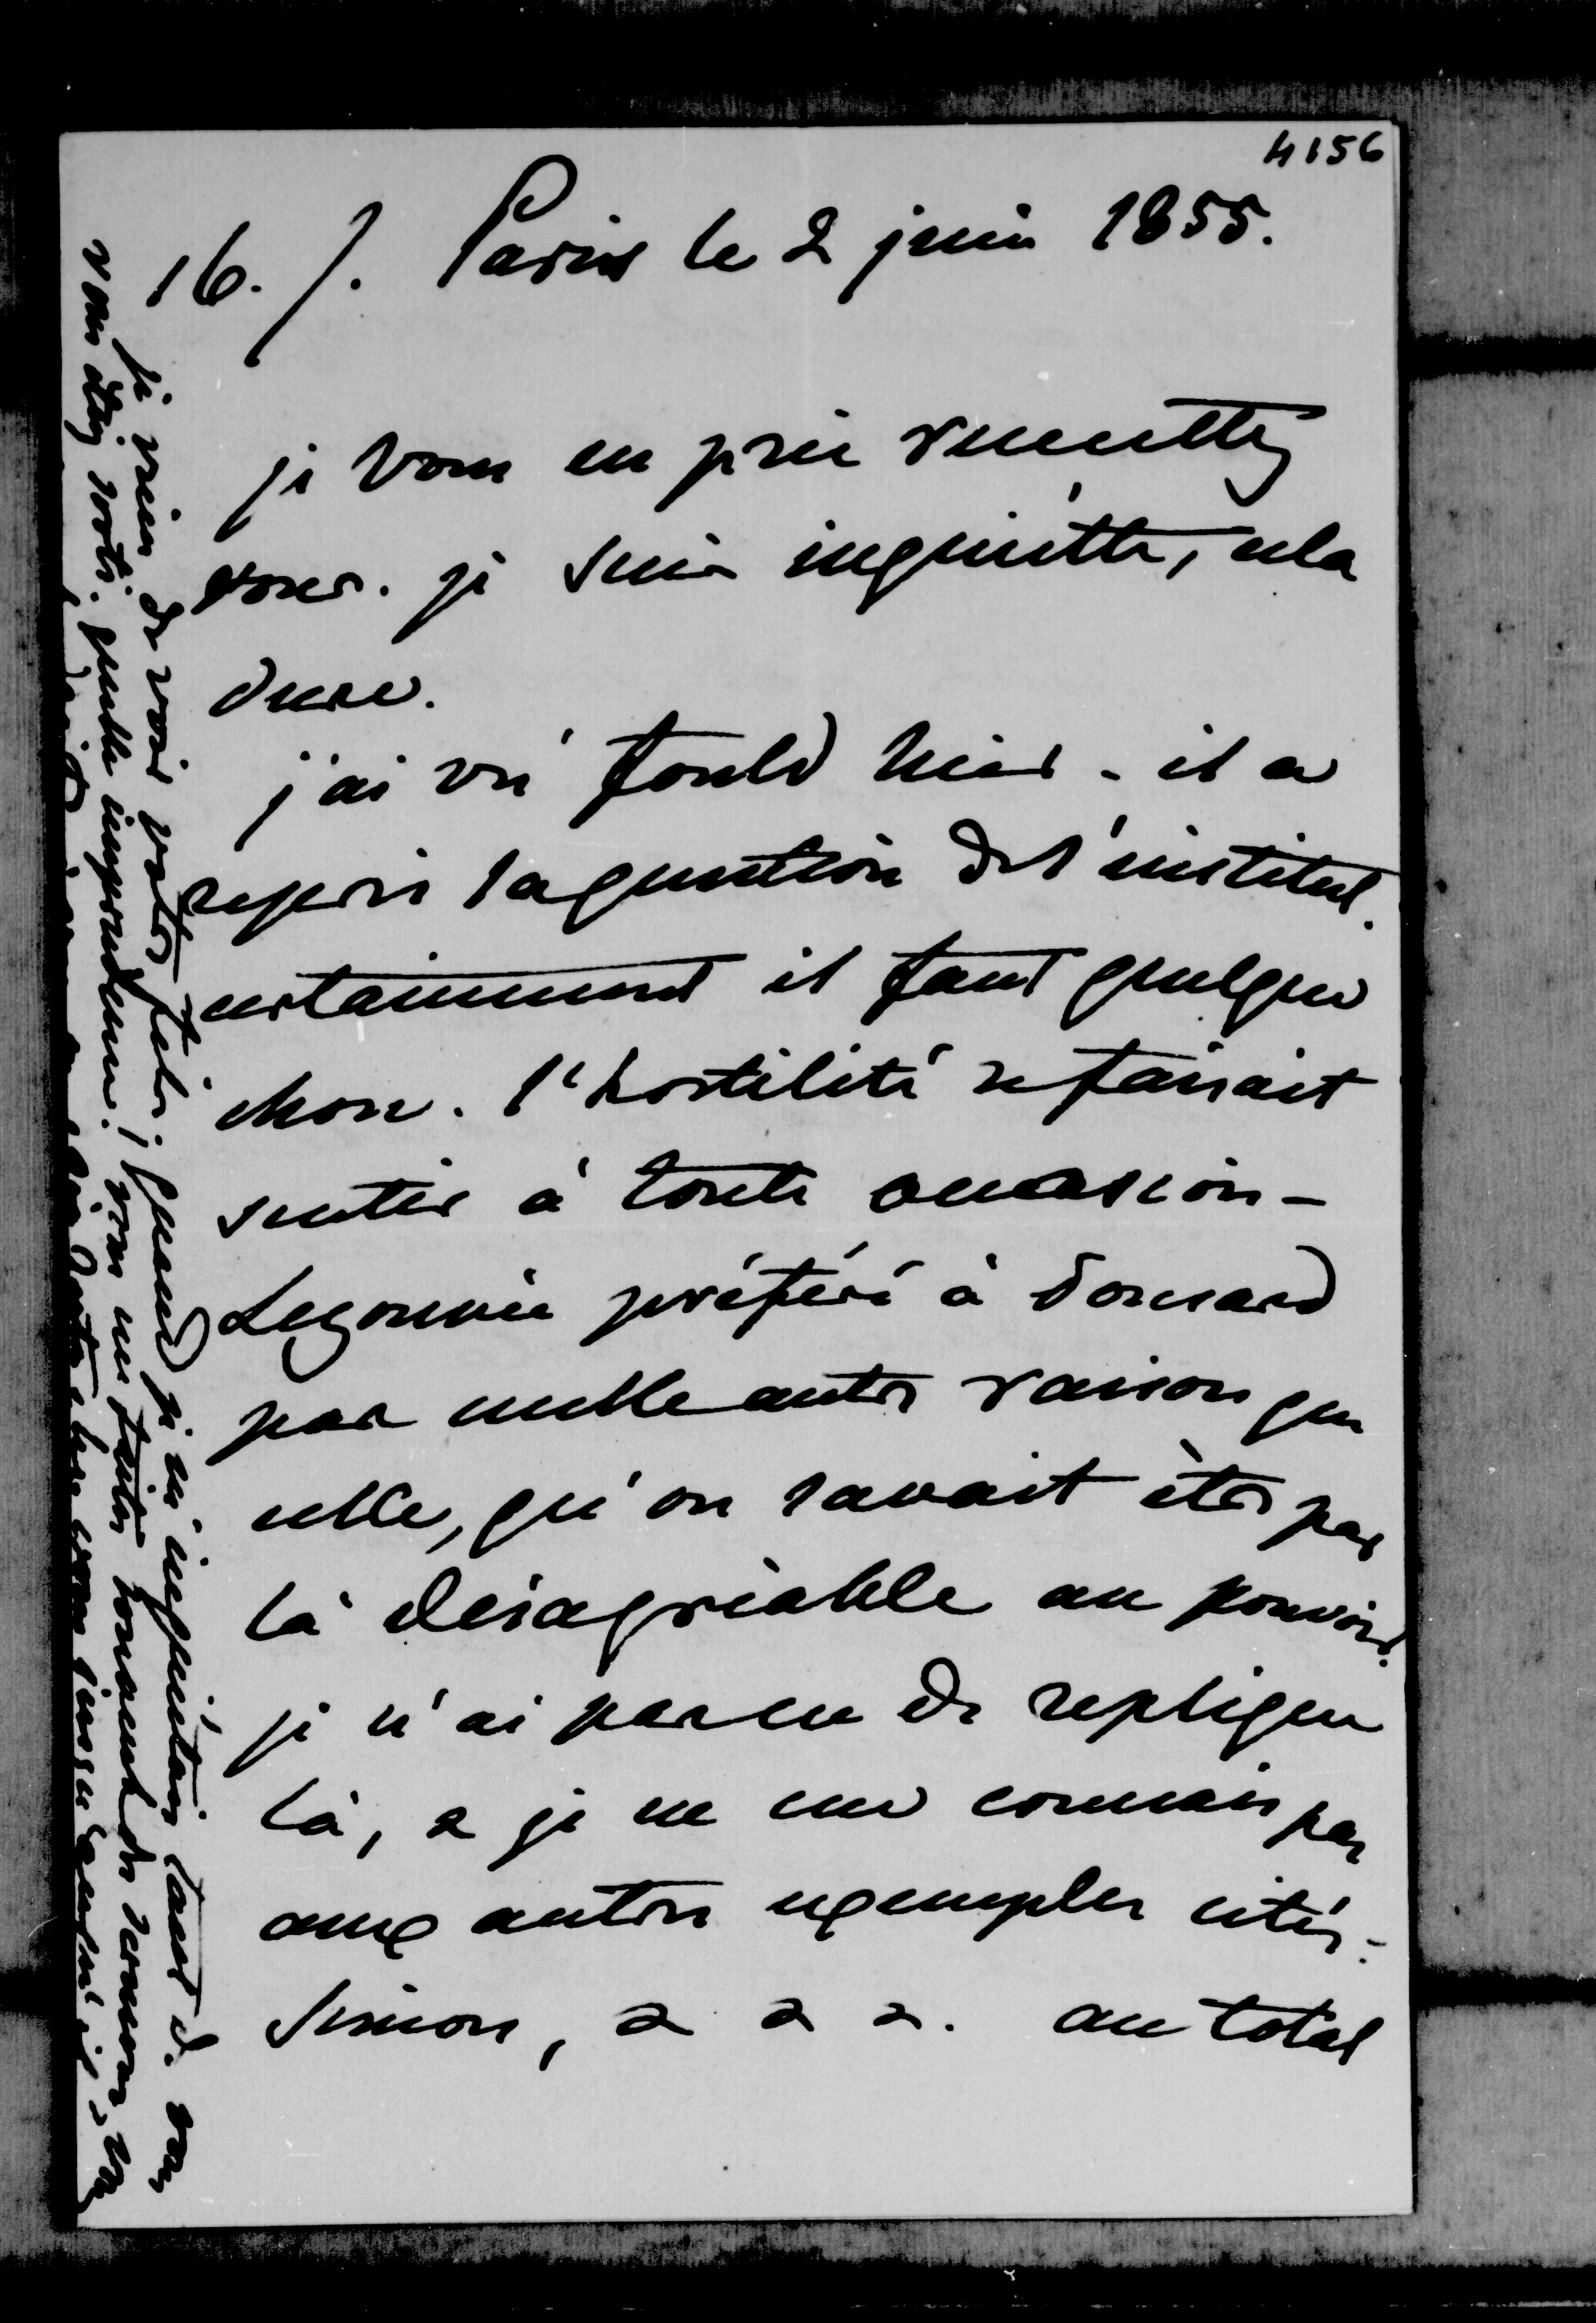 4156
16. /. Paris le 2 juin 1855.
je vous en prie remettez
vous. je suis inquiette, cela
dure.
j'ai vu Fould hier. il a
repris la question de l'institut.
certainement il faut quelque
chose. l'hostilité se faisait
sentir à toute occasion -
Legouvée préféré à Ponsard
par nulle autre raison que
celle, qu'on savait être par
là désagréable au pouvoir.
je n'ai pas eu de replique
là, & je ne me connais pas
aux autres exemples cités.
Simon, & & &. au total
je viens de voir votre fils; quand je m'inquietais tant d. vous
vous étiez sorti. quelle imprudence! vous me faites tonament de sermons, vous